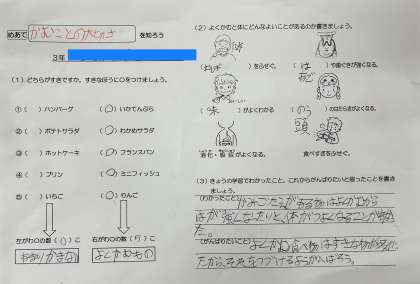 めあて かむことの大切さ を知ろう
3年
(1) どちらがすきですか。すきなほうに○をつけましょう。
① ( ) ハンバーグ (○) いかてんぷら
② ( ) ポテトサラダ (○) わかめサラダ
③ ( ) ホットケーキ (○) フランスパン
④ ( ) プリン (○) ミニフィッシュ
⑤ ( ) いちご (○) りんご
左がわ○の数 (0) こ 右がわ○の数 (5) こ
あまりかまない よくかむもの
(2) よくかむと体にどんなよいことがあるのか書きましょう。
( ) をふせぐ。 (は) や歯ぐきが強くなる。
あご
(味) がよくわかる (のう) のはたらきがよくなる。
頭
消化・吸収がよくなる。 食べすぎをふせぐ。
(3) きょうの学習でわかったこと。これからがんばりたいと思ったことを書き
ましょう。
(わかったこと) かみごたえがある物はよくかむから
はが強くなしたいと、体がつよくなることが分かっ
た。
(がんばりたいこと) よくかむ食べ物はすきな物が多かっ
たから、それをつづけるようがんばろう。